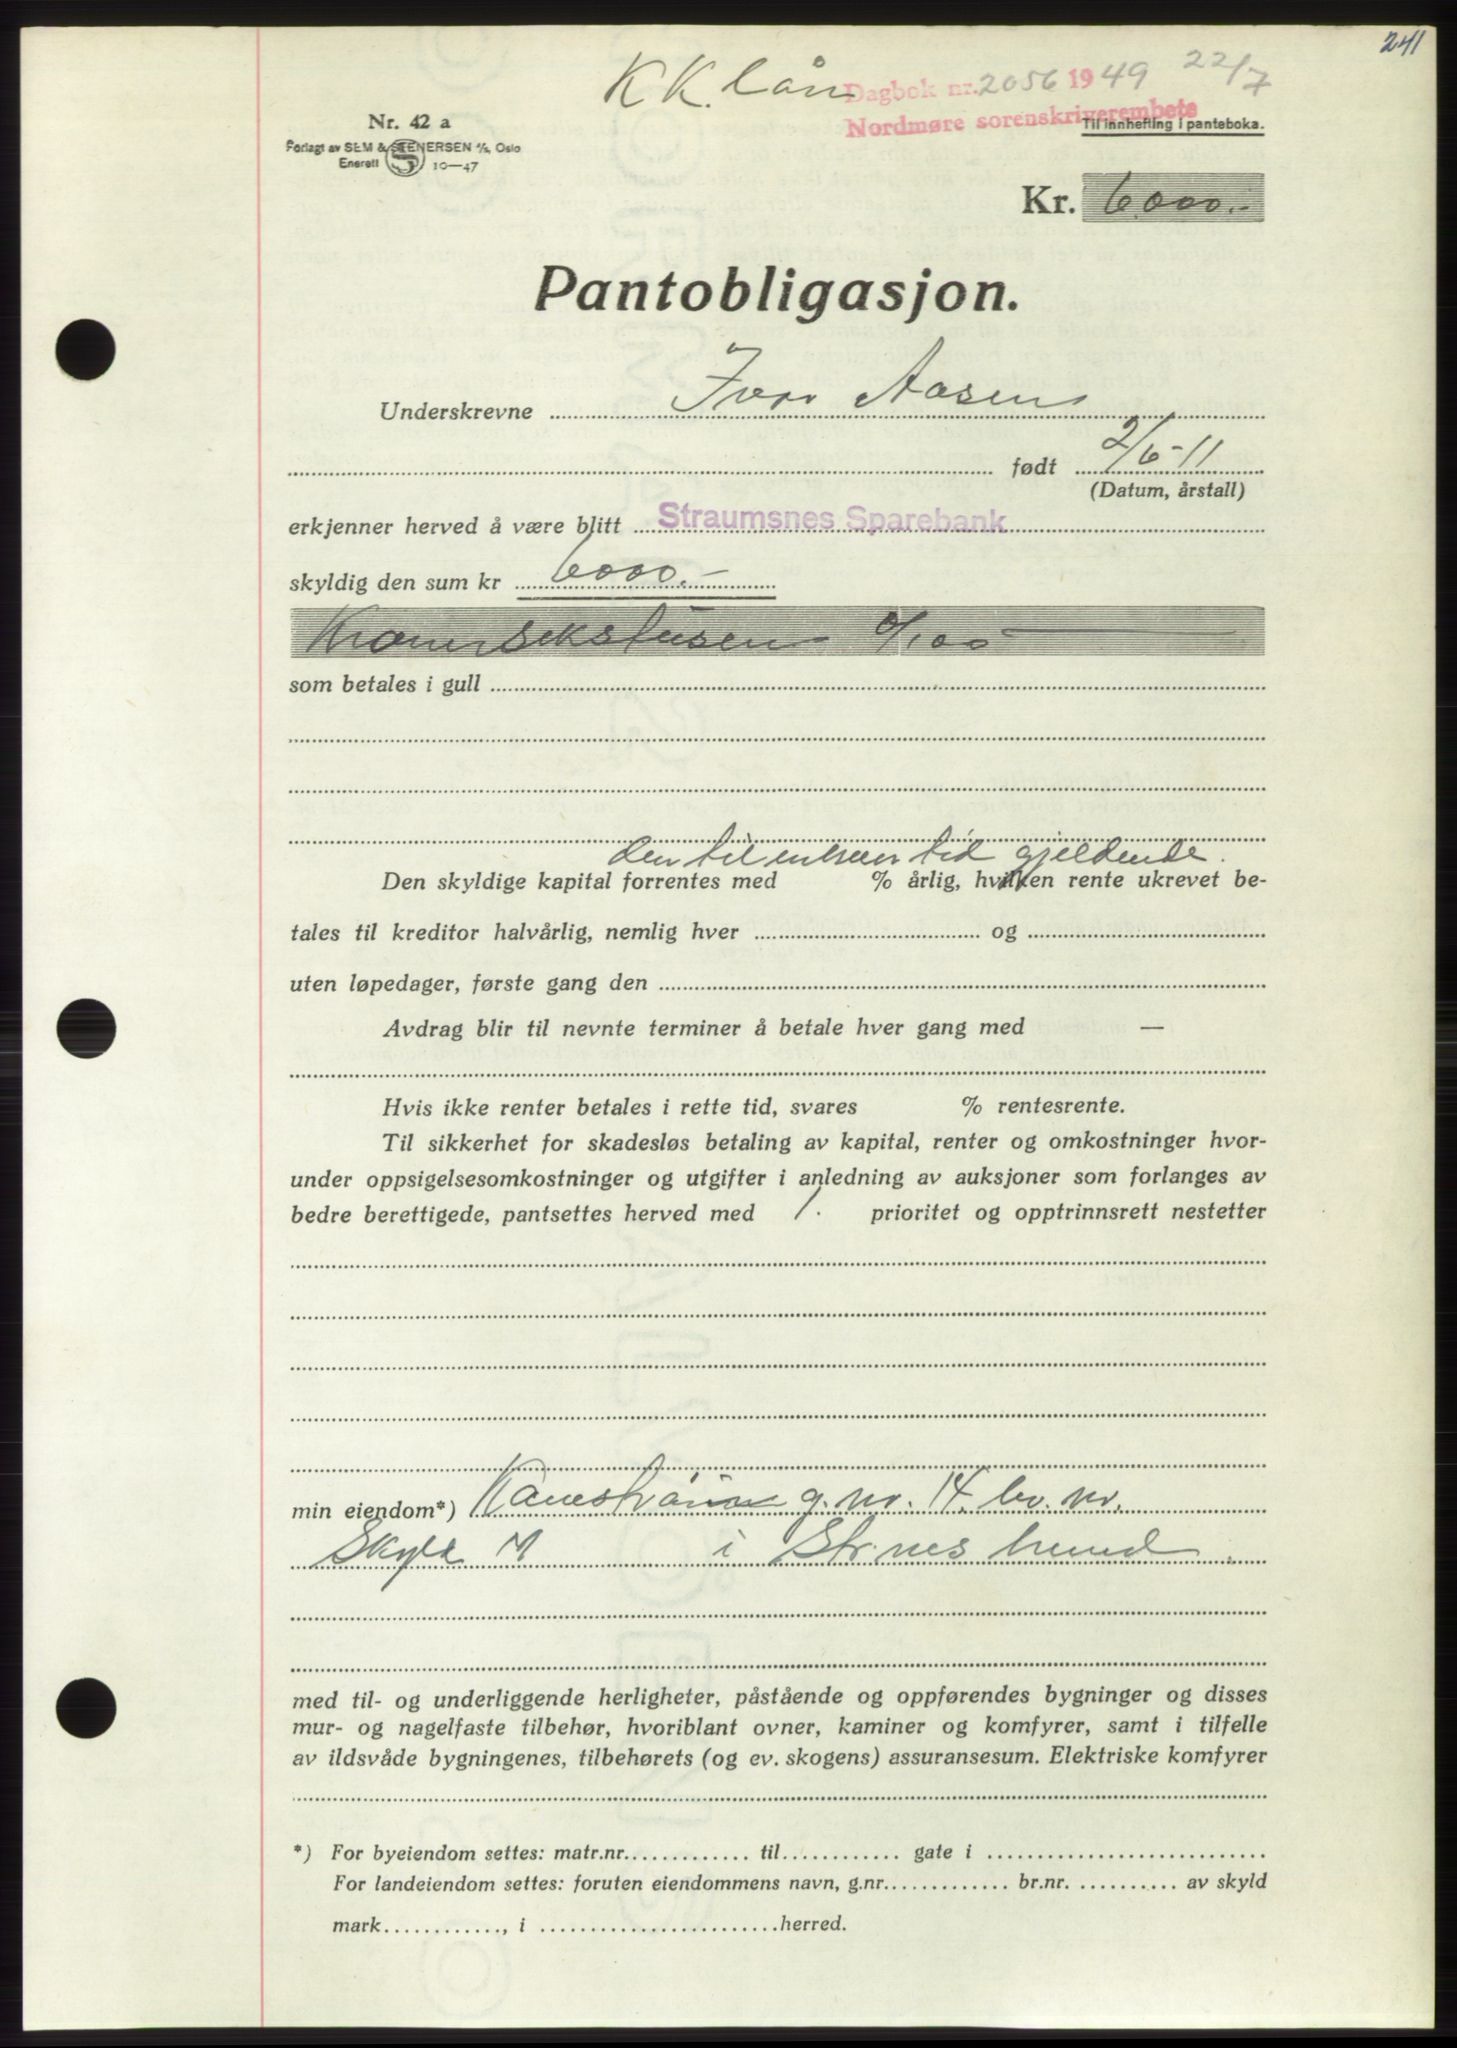 241
KK. lån
Dagbok nr. 2056 1949 22/7
Nordmøre sorenskriverembete
Til innhefting i panteboka.
Nr. 42 a
Forlagt av SEM & STENERSEN A/S, Oslo
Enerett S 10—47
Kr. 6000.-
Pantobligasjon.
Underskrevne Ivar Aasen
født 2/6-11
(Datum, årstall)
erkjenner herved å være blitt Straumsnes Sparebank
skyldig den sum kr 6000.-
Kroner Sekstusen 0/100
som betales i gull
den til enhver tid gjeldende.
Den skyldige kapital forrentes med % årlig, hvilken rente ukrevet be-
tales til kreditor halvårlig, nemlig hver og
uten løpedager, første gang den
Avdrag blir til nevnte terminer å betale hver gang med —
Hvis ikke renter betales i rette tid, svares % rentesrente.
Til sikkerhet for skadesløs betaling av kapital, renter og omkostninger hvor-
under oppsigelsesomkostninger og utgifter i anledning av auksjoner som forlanges av
bedre berettigede, pantsettes herved med 1. prioritet og opptrinnsrett nestetter
min eiendom*) g. nr. 14. br. nr.
Skyld M i Str.nes herred.
med til- og underliggende herligheter, påstående og oppførendes bygninger og disses
mur- og nagelfaste tilbehør, hvoriblant ovner, kaminer og komfyrer, samt i tilfelle
av ildsvåde bygningenes, tilbehørets (og ev. skogens) assuransesum. Elektriske komfyrer
*) For byeiendom settes: matr.nr. til gate i
For landeiendom settes: foruten eiendommens navn, g.nr. br.nr. av skyld
mark , i herred.